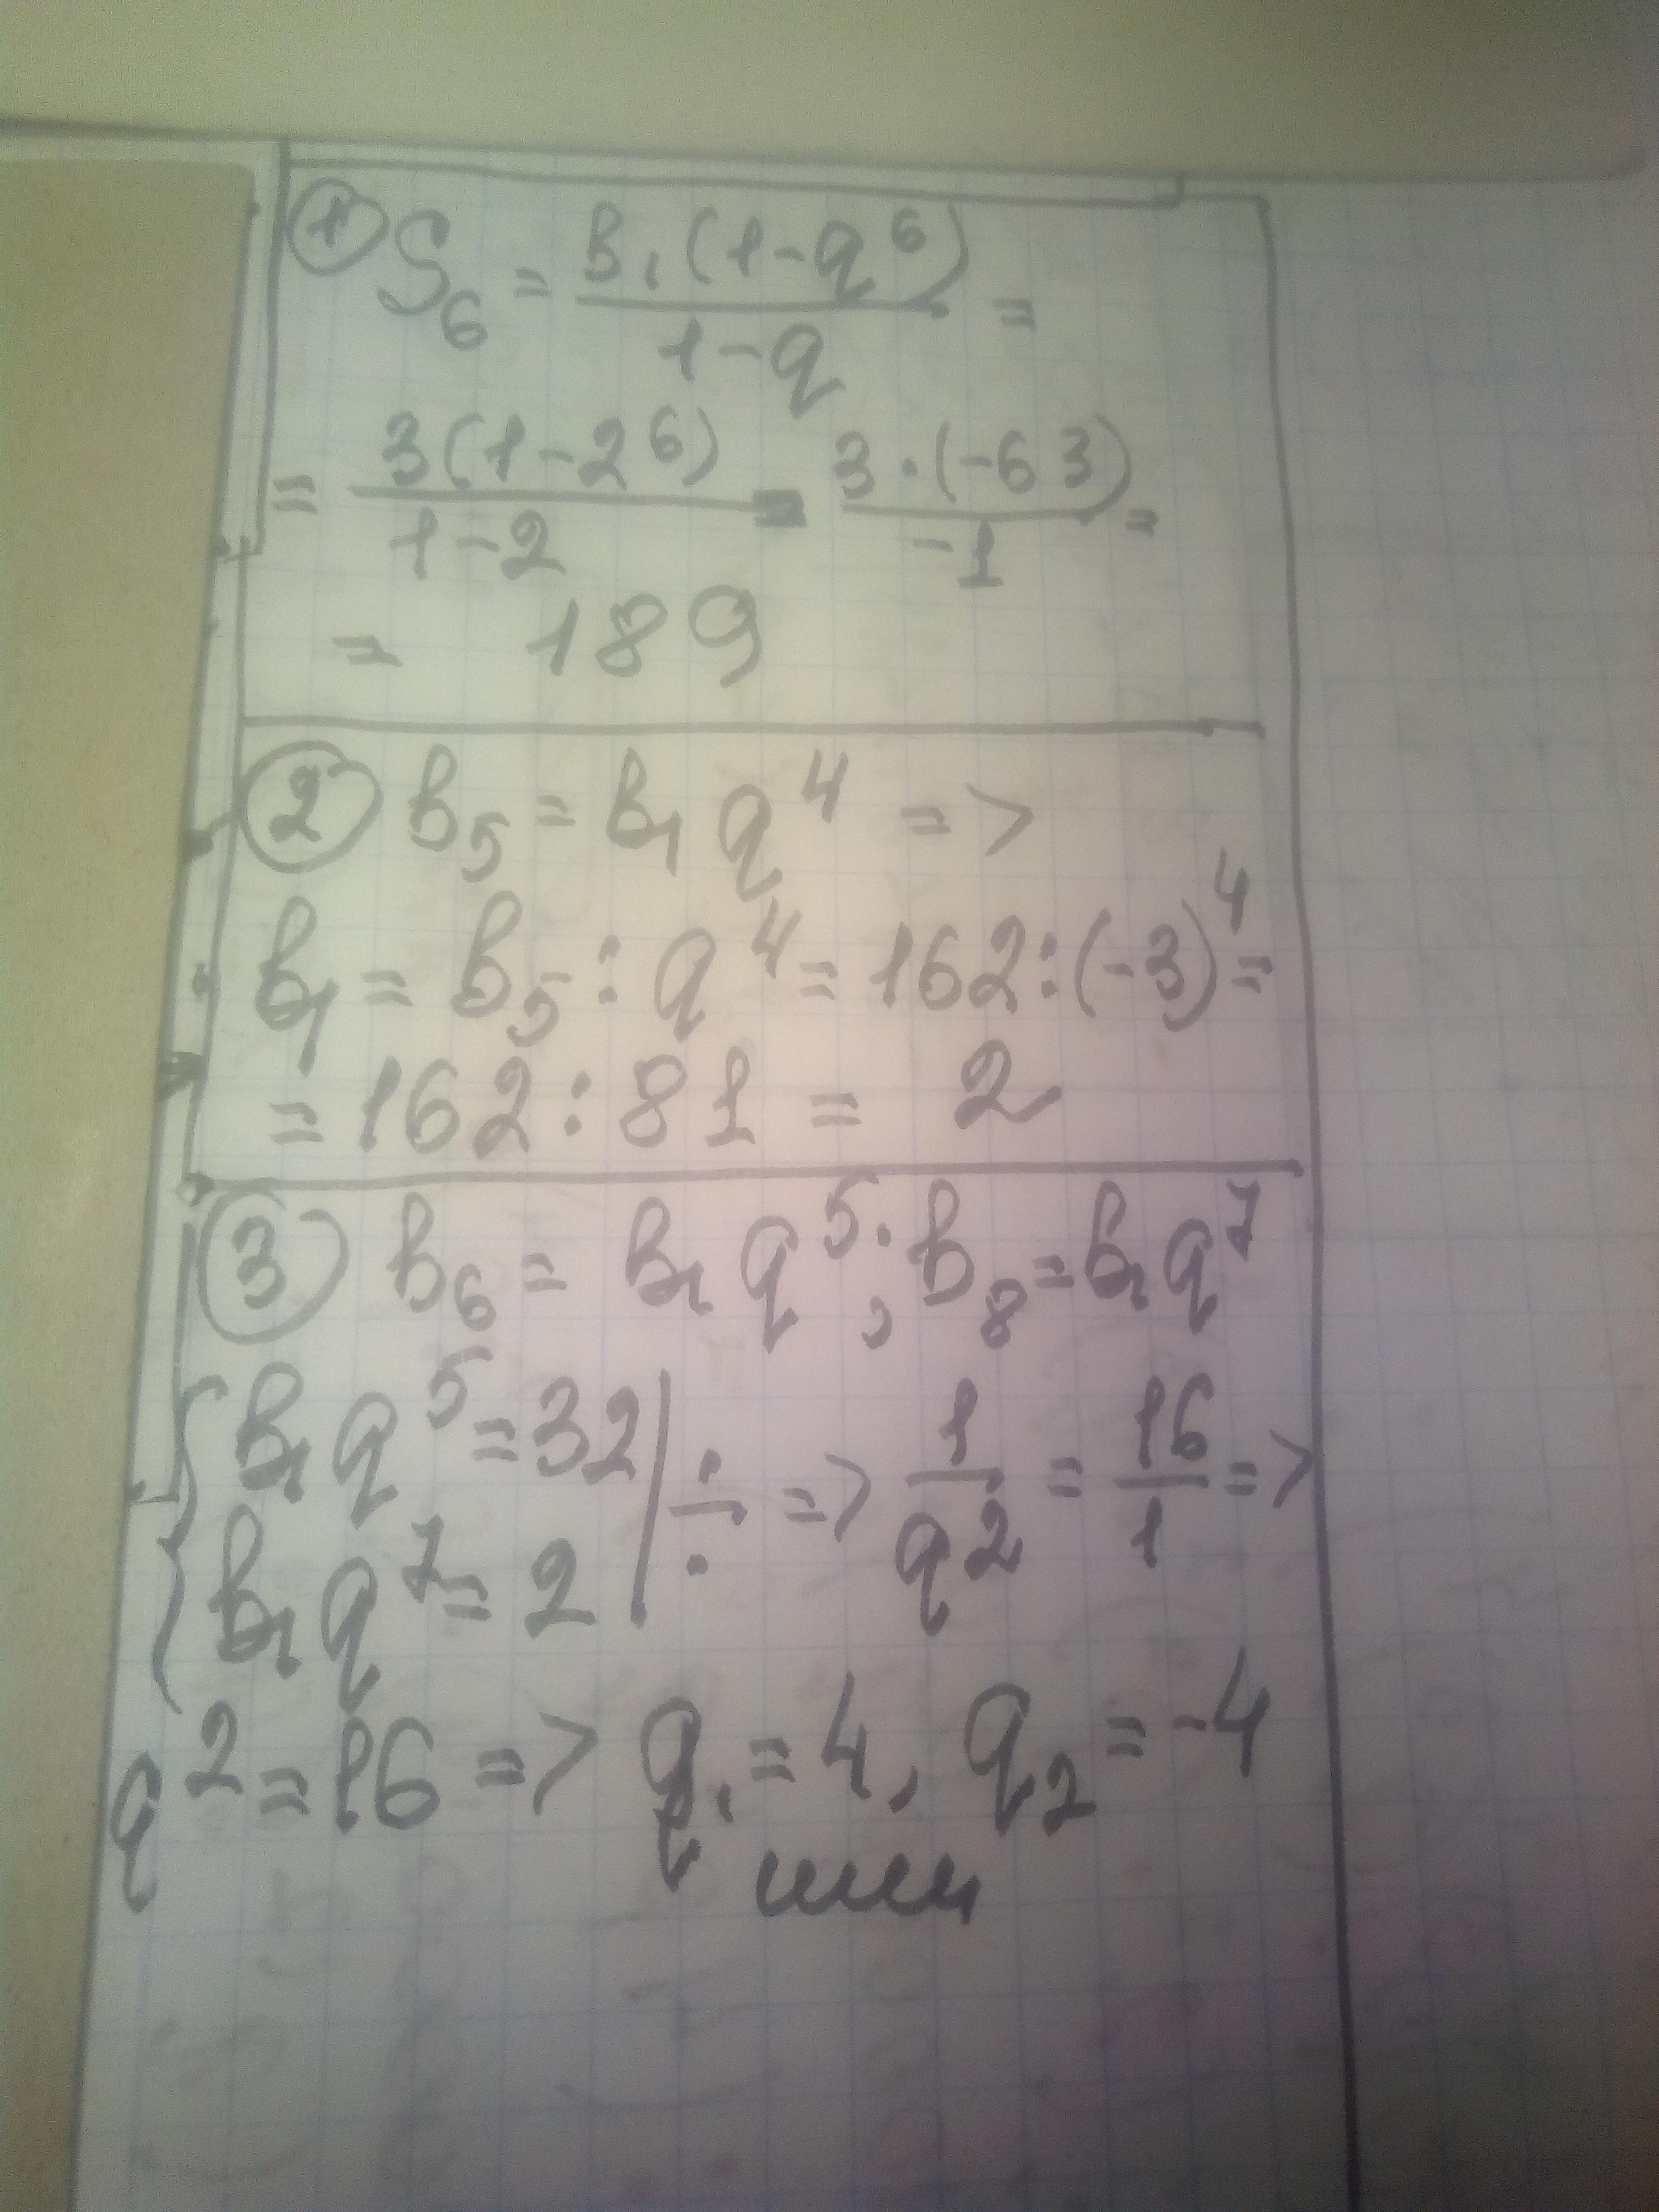 ① S₆ = B₁(1-q⁶)/(1-q) =
= 3(1-2⁶)/(1-2) = 3·(-63)/(-1) =
= 189
② b₅ = b₁ q⁴ =>
b₁ = b₅ : q⁴ = 162 : (-3)⁴ =
= 162 : 81 = 2
③ b₆ = b₁ q⁵; b₈ = b₁ q⁷
{ b₁ q⁵ = 32 | ÷ => 1/q² = 16/1 =>
b₁ q⁷ = 2
q² = 16 => q₁ = 4, q₂ = -4